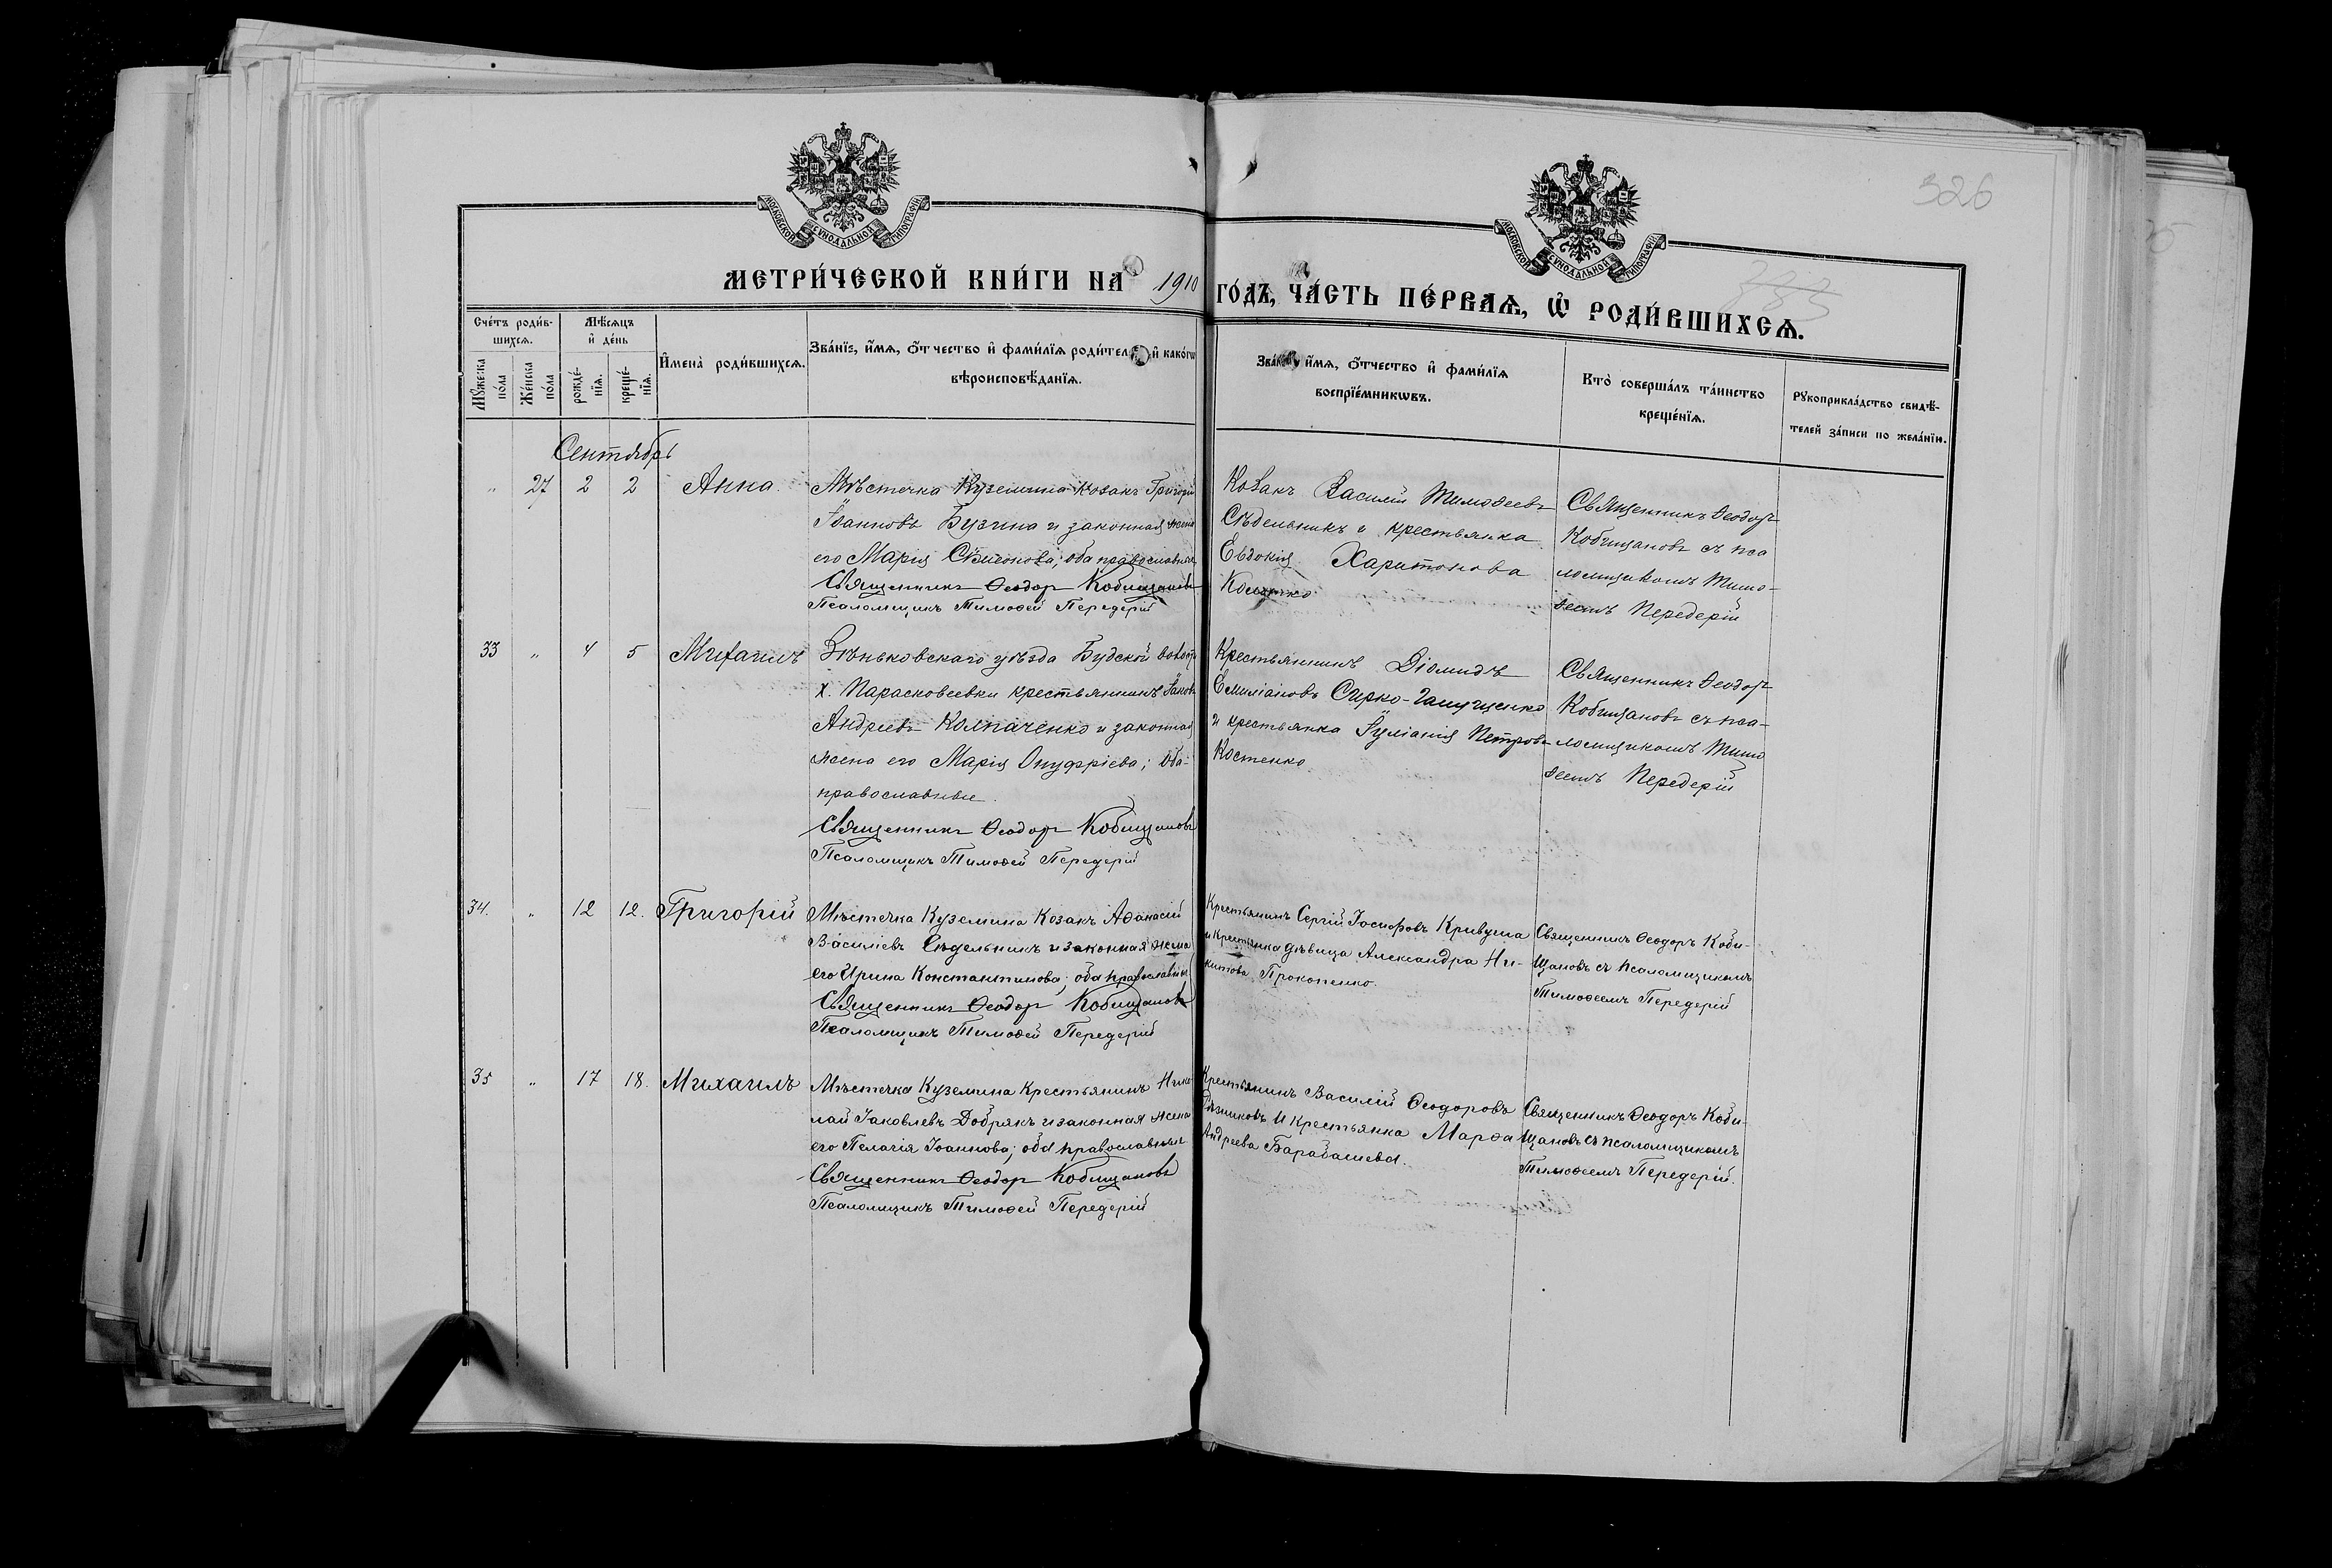 326
МОСКОВСКОЙ СѴНОДАЛЬНОЙ ТИПОГРАФІИ
МОСКОВСКОЙ СѴНОДАЛЬНОЙ ТИПОГРАФІИ
МЕТРИ́ЧЕСКОЙ КНИ́ГИ НА 1910 ГО́ДЪ, ЧА́СТЬ ПЕ́РВАѦ, Ѿ РОДИ́ВШИХСѦ.
Сче́тъ роди́вшихсѧ.
Мꙋ́жеска по́ла
Же́нска по́ла
Мѣ́сѧцъ и҆ де́нь
рожде́нїѧ.
креще́нїѧ.
И҆мена̀ роди́вшихсѧ.
Зва́нїе, и҆́мѧ, ѻ҆́тчество и҆ фами́лїѧ роди́телей, и҆ како́гѡ
вѣроисповѣ́данїѧ.
Зва́нїе, и҆́мѧ, ѻ҆́тчество и҆ фами́лїѧ
воспрїе́мникѡвъ.
Кто̀ соверша́лъ та́инство
креще́нїѧ.
Рꙋкоприкла́дство свидѣ́-
телей за́писи по жела́нїю.
Сентябрь
" 27 2 2 Анна.
Мѣстечка Куземина козакъ Григорій
Іоанновъ Бузина и законная жена
его Марія Сѵмеонова; оба православные
Священникъ Ѳеодоръ Кобищановъ
Псаломщикъ Тимоѳей Передерій
Козакъ Василій Тимоѳеевъ
Сѣдельникъ и крестьянка
Евдокія Харитонова
Священникъ Ѳеодоръ
Кобищановъ съ пса
ломщикомъ Тимо-
ѳеемъ Передерій
33 " 4 5 Михаилъ
Зѣньковскаго уѣзда Будской волости
х. Парасковеевки крестьянинъ Іаковъ
Андреевъ Колпаченко и законная
жена его Марія Онуфріева; оба-
православные.
Священникъ Ѳеодоръ Кобищановъ
Псаломщикъ Тимоѳей Передерій
Крестьянинъ Діомидъ
Емиліановъ Сирко-
и крестьянка Іуліанія Петрова
Костенко
Священникъ Ѳеодоръ
Кобищановъ съ пса-
ломщикомъ Тимо
ѳеемъ Передерій
34. " 12 12. Григорій
Мѣстечка Куземина Козакъ Аѳанасій
Василіевъ Сѣдельникъ и законная жена
его Ирина Константинова; оба православные
Священникъ Ѳеодоръ Кобищановъ
Псаломщикъ Тимоѳей Передерій
Крестьянинъ Сергій Іосифовъ Кривуша
и крестьянка дѣвица Александра Ни-
китова Прокопенко.
Священникъ Ѳеодоръ Коби-
щановъ съ псаломщикомъ
Тимоѳеемъ Передерій
35 " 17 18. Михаилъ
Мѣстечка Куземина Крестьянинъ Нико-
лай Іаковлевъ Добрякъ и законная жена
его Пелагія Іоаннова; оба православные
Священникъ Ѳеодоръ Кобищановъ
Псаломщикъ Тимоѳей Передерій
Крестьянинъ Василій Ѳеодоровъ
и крестьянка Марѳа
Андреева Барабашева.
Священникъ Ѳеодоръ Коби-
щановъ съ псаломщикомъ
Тимоѳеемъ Передерій.